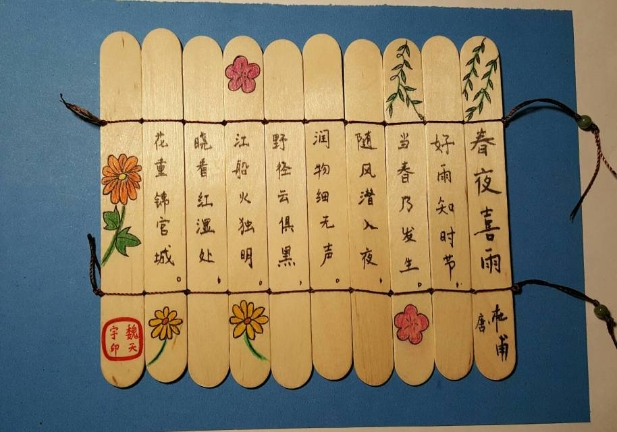 春夜喜雨
唐 杜甫
好雨知时节，
当春乃发生。
随风潜入夜，
润物细无声。
野径云俱黑，
江船火独明。
晓看红湿处，
花重锦官城。
魏天
宇印